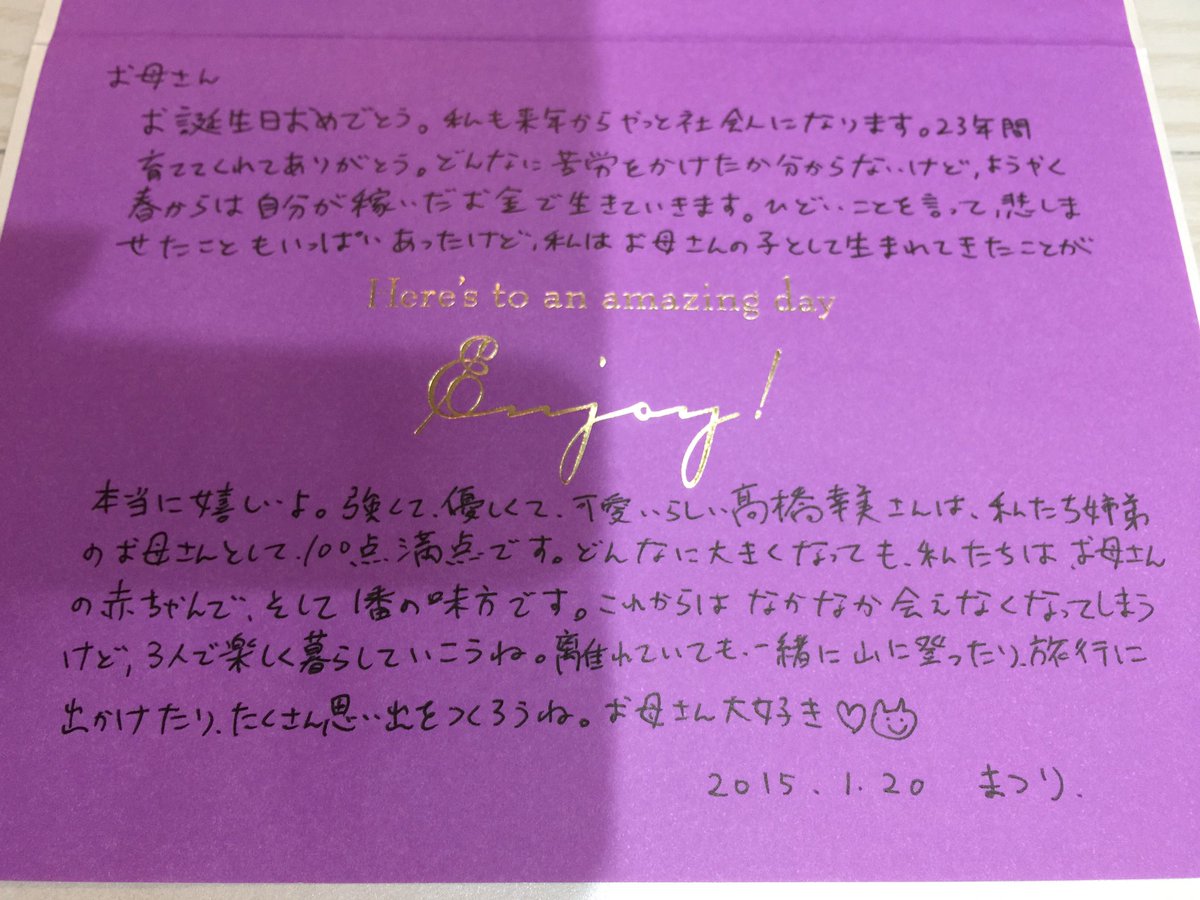 お母さん
お誕生日おめでとう。私も来年からやっと社会人になります。23年間
育ててくれてありがとう。どんなに苦労をかけたか分からないけど、ようやく
春からは自分が稼いだお金で生きていきます。ひどいことを言って、悲しま
せたこともいっぱいあったけど、私はお母さんの子として生まれてきたことが
Here's to an amazing day
Enjoy!
本当に嬉しいよ。強くて、優しくて、可愛いらしい高橋幸美さんは、私たち姉弟
のお母さんとして、100点満点です。どんなに大きくなっても、私たちはお母さん
の赤ちゃんで、そして1番の味方です。これからはなかなか会えなくなってしまう
けど、3人で楽しく暮らしていこうね。離れていても、一緒に山に登ったり、旅行に
出かけたり、たくさん思い出をつくろうね。お母さん大好き♡
2015.1.20 まつり.